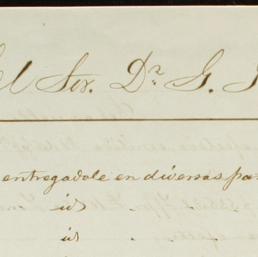 el Sor. Dr. G.
entregadole en diversas pa
id
id